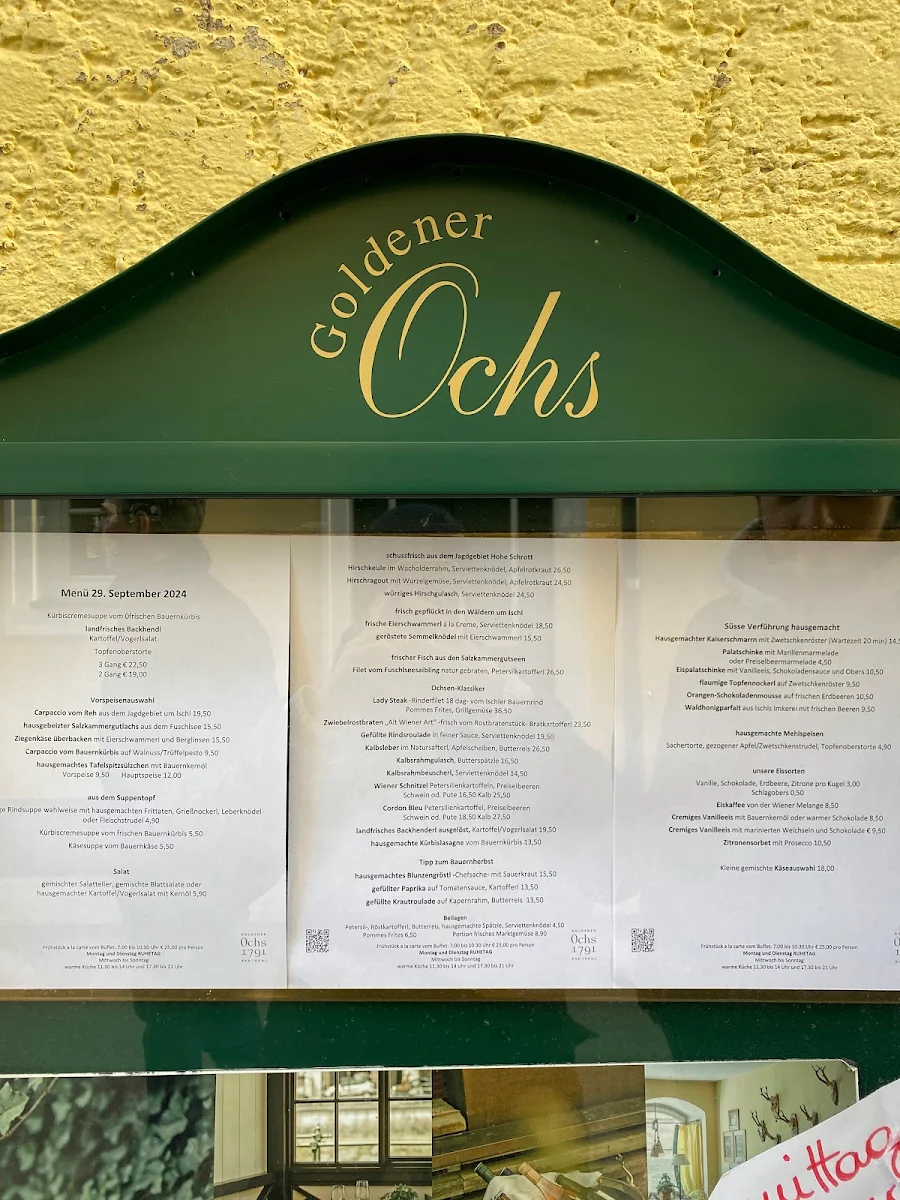 Goldener
Ochs
Menü 29. September 2024
Kürbiscremesuppe vom 0frischen Bauernkürbis
landfrisches Backhendl
Kartoffel/Vogerlsalat
Topfenoberstorte
3 Gang € 22,50
2 Gang € 19,00
Vorspeisenauswahl
Carpaccio vom Reh aus dem Jagdgebiet um Ischl 19,50
hausgebeizter Salzkammergutlachs aus dem Fuschlsee 15,50
Ziegenkäse überbacken mit Eierschwammerl und Berglinsen 15,50
Carpaccio vom Bauernkürbis auf Walnuss/Trüffelpesto 9,50
hausgemachtes Tafelspitzsülzchen mit Bauernkernöl
Vorspeise 9,50 Hauptspeise 12,00
aus dem Suppentopf
Rindsuppe wahlweise mit hausgemachten Frittaten, Grießnockerl, Leberknödel
oder Fleischstrudel 4,90
Kürbiscremesuppe vom frischen Bauernkürbis 5,50
Käsesuppe vom Bauernkäse 5,50
Salat
gemischter Salatteller, gemischte Blattsalate oder
hausgemachter Kartoffel/Vogerlsalat mit Kernöl 5,90
Frühstück a la carte vom Buffet: 7.00 bis 10.30 Uhr € 25,00 pro Person
Montag und Dienstag RUHETAG
Mittwoch bis Sonntag
warme Küche 11.30 bis 14 Uhr und 17.30 bis 21 Uhr
GOLDENER
Ochs
1791
BAD ISCHL
schussfrisch aus dem Jagdgebiet Hohe Schrott
Hirschkeule im Wacholderrahm, Serviettenknödel, Apfelrotkraut 26,50
Hirschragout mit Wurzelgemüse, Serviettenknödel, Apfelrotkraut 24,50
würziges Hirschgulasch, Serviettenknödel 24,50
frisch gepflückt in den Wäldern um Ischl
frische Eierschwammerl á la Creme, Serviettenknödel 18,50
geröstete Semmelknödel mit Eierschwammerl 15,50
frischer Fisch aus den Salzkammergutseen
Filet vom Fuschlseesaibling natur gebraten, Petersilkartofferl 26,50
Ochsen-Klassiker
Lady Steak -Rinderfilet 18 dag- vom Ischler Bauernrind
Pommes Frites, Grillgemüse 36,50
Zwiebelrostbraten „Alt Wiener Art" -frisch vom Rostbratenstück- Bratkartofferl 23,50
Gefüllte Rindsroulade in feiner Sauce, Serviettenknödel 19,50
Kalbsleber im Natursafterl, Apfelscheiben, Butterreis 26,50
Kalbsrahmgulasch, Butterspätzle 16,50
Kalbsrahmbeuscherl, Serviettenknödel 14,50
Wiener Schnitzel Petersilienkartoffeln, Preiselbeeren
Schwein od. Pute 16,50 Kalb 25,50
Cordon Bleu Petersilienkartoffel, Preiselbeeren
Schwein od. Pute 18,50 Kalb 27,50
landfrisches Backhenderl ausgelöst, Kartoffel/Vogerlsalat 19,50
hausgemachte Kürbislasagne vom Bauernkürbis 13,50
Tipp zum Bauernherbst
hausgemachtes Blunzengröstl -Chefsache- mit Sauerkraut 15,50
gefüllter Paprika auf Tomatensauce, Kartofferl 13,50
gefüllte Krautroulade auf Kapernrahm, Butterreis 13,50
Beilagen
Petersil-, Röstkartofferl, Butterreis, hausgemachte Spätzle, Serviettenknödel 4,50
Pommes Frites 6,50 Portion frisches Marktgemüse 8,90
Frühstück a la carte vom Buffet: 7.00 bis 10.30 Uhr € 25,00 pro Person
Montag und Dienstag RUHETAG
Mittwoch bis Sonntag
warme Küche 11.30 bis 14 Uhr und 17.30 bis 21 Uhr
GOLDENER
Ochs
1791
BAD ISCHL
Süsse Verführung hausgemacht
Hausgemachter Kaiserschmarrn mit Zwetschkenröster (Wartezeit 20 min)
Palatschinke mit Marillenmarmelade
oder Preiselbeermarmelade 4,50
Eispalatschinke mit Vanilleeis, Schokoladensauce und Obers 10,50
flaumige Topfennockerl auf Zwetschkenröster 9,50
Orangen-Schokoladenmousse auf frischen Erdbeeren 10,50
Waldhonigparfait aus Ischls Imkerei mit frischen Beeren 9,50
hausgemachte Mehlspeisen
Sachertorte, gezogener Apfel/Zwetschkenstrudel, Topfenoberstorte 4,90
unsere Eissorten
Vanille, Schokolade, Erdbeere, Zitrone pro Kugel 3,00
Schlagobers 0,50
Eiskaffee von der Wiener Melange 8,50
Cremiges Vanilleeis mit Bauernkernöl oder warmer Schokolade 8,50
Cremiges Vanilleeis mit marinierten Weichseln und Schokolade € 9,50
Zitronensorbet mit Prosecco 10,50
Kleine gemischte Käseauswahl 18,00
Frühstück a la carte vom Buffet: 7.00 bis 10.30 Uhr € 25,00 pro Person
Montag und Dienstag RUHETAG
Mittwoch bis Sonntag
warme Küche 11.30 bis 14 Uhr und 17.30 bis 21 Uhr